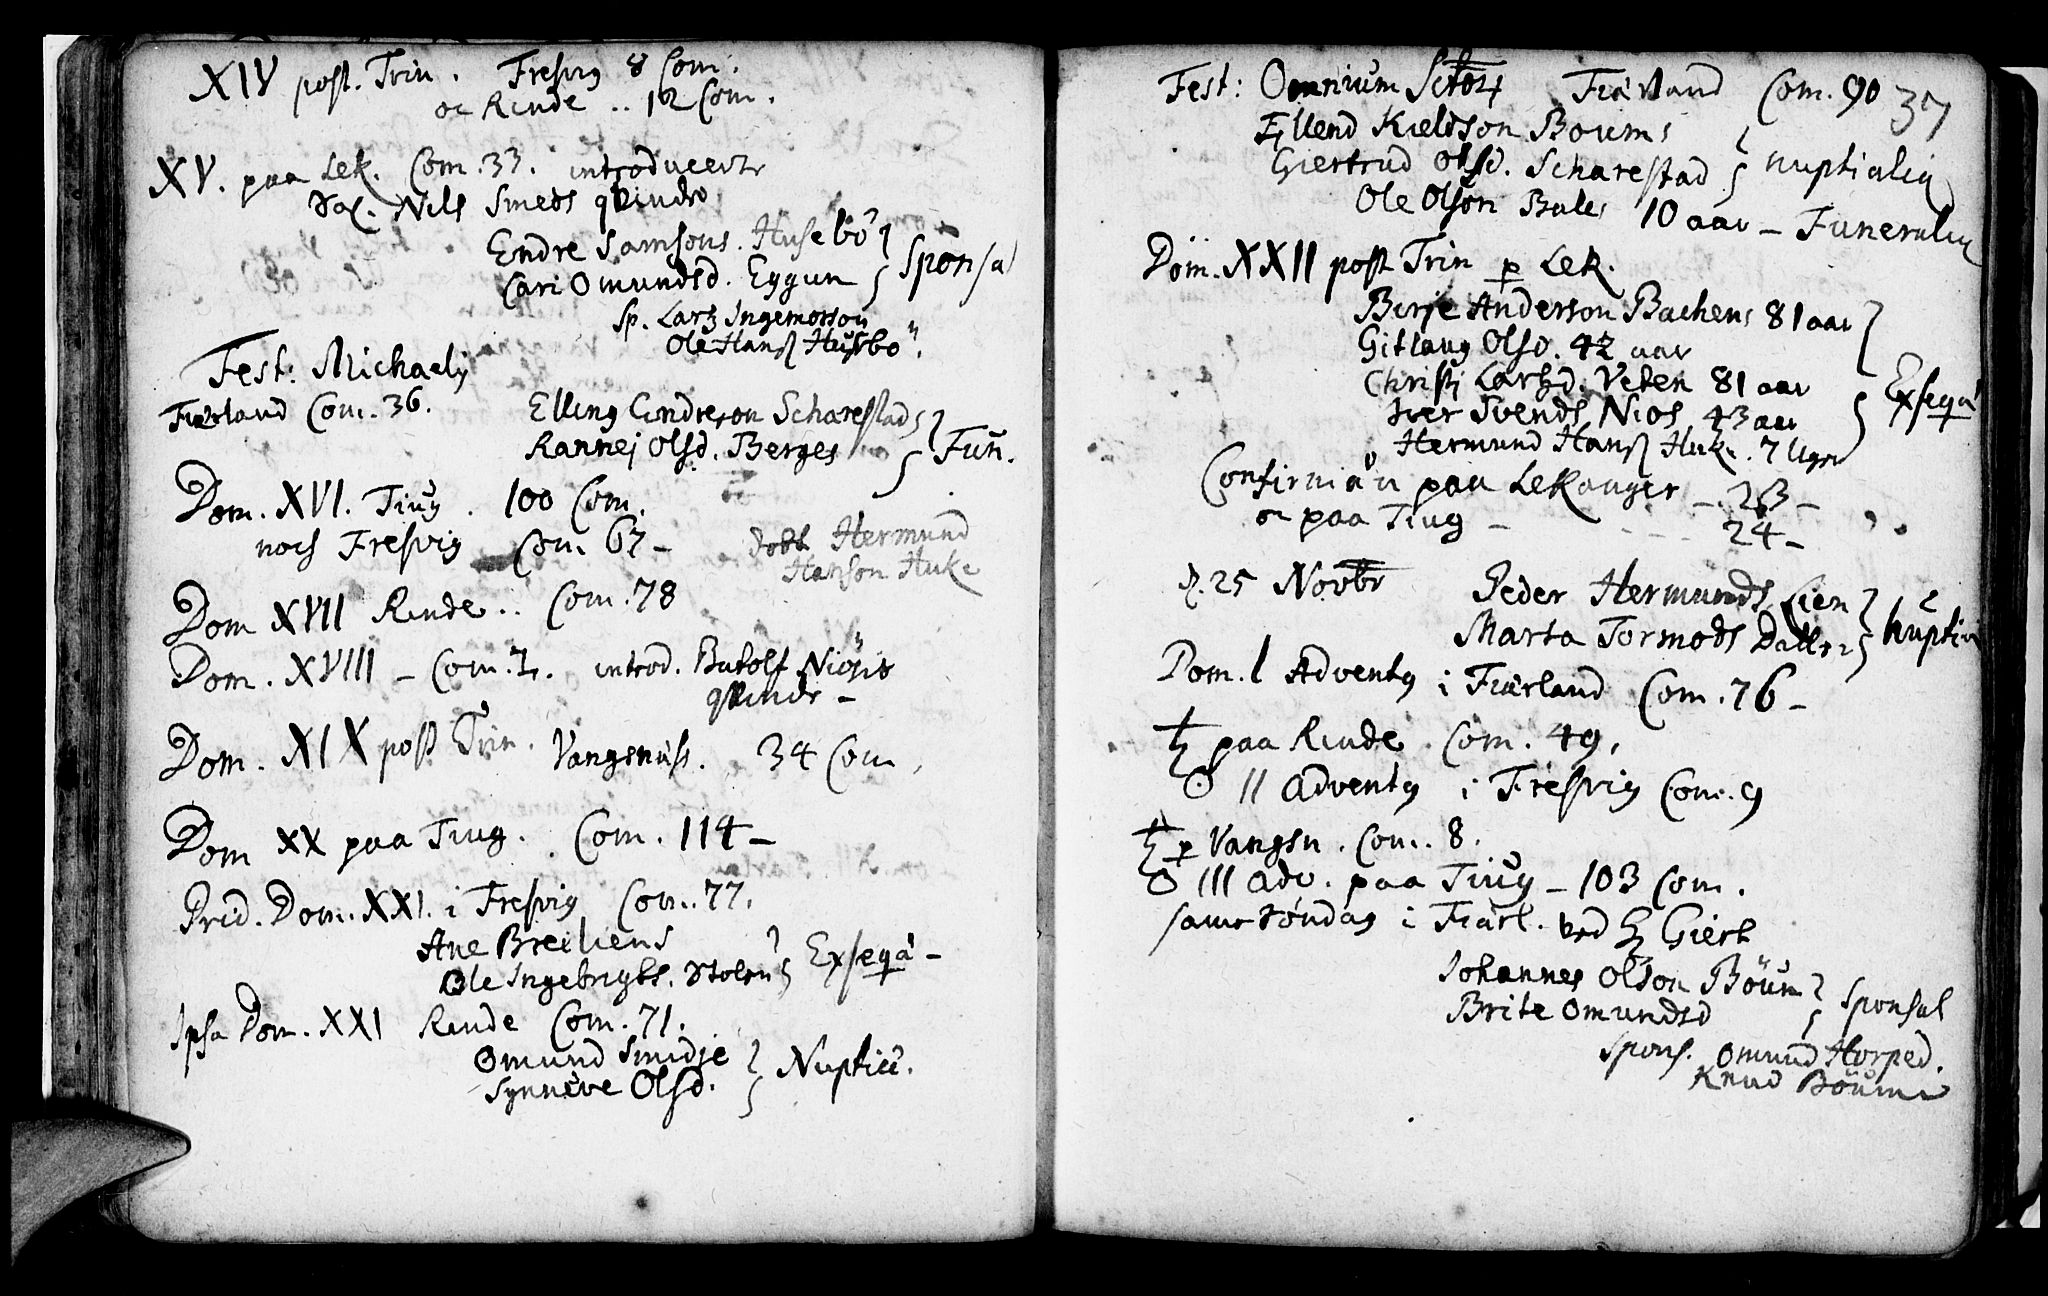 XIV post. Trin. Fresvig 8 Com.
oc Rinde .. 12 Com.
XV. paa Lek. Com. 33. introduceert
Nils Smeds qvinde
Endre Samsons. Husebö
Cari Omundsd. Eggum } Sponsal
Sp. Lars Ingemorson
Ole Hanss Husebö.
Fest: Michaelis
Fiærland Com. 36. Elling Endreson Scharestad
Rannei Olsd. Berges } Fun.
Dom. XVI. Tiug. 100 Com.
noch Fresvig Com 67 –
dobt Hermund
Hanson Huke
Dom XVII Rinde .. Com. 78
Dom. XVIII – Com. 7. introd. Botolf Niösis
qvinde –
Dom. XIX post Trin. Vangsnäss. 34 Com.
Dom XX paa Tiug. Com. 114 –
Prid. Dom. XXI. i Fresvig Com. 77.
Ane Breiliens
Ole Ingebrigts. Stolen } Exseqa –
Ipsa Dom. XXI Rinde Com. 71.
Omund Smidje
Synneve Olsd. } Nuptiæ.
37
Fest: Omnium Sctor Fiærland Com. 90
Ellend Kieldson Boums
Giertrud Olsd. Scharestad } nuptialia
Ole Olson Bales 10 aar – Funeralia
Dom. XXII post Trin p Lek.
Berje Anderson Bachens 81 aar
Gitlaug Olsd. 42 aar
Christi Larsd. Veten 81 aar
Iver Svends Nios 43 aar
Hermund Hanss Huke. 7 Uger } Exseqa
Confirmati paa Lekanger – 23 –
oc paa Tiug – 24 –
d. 25 Novbr Peder Hermunds Lien
Marta Tormods Datter } nuptiæ
Dom. I Adventus i Fiærland Com. 76 –
♄ paa Rinde. Com. 49.
☉ II Adventus i Fresvig Com. 9
♄ p Vangsn. Com. 8.
☉ III Adv. paa Tiug – 103 Com.
samme Söndag i Fiærl. ved H Giert
Johannes Olson Böum
Brite Omundsd } Sponsal
Spons. Omund Horped.
Knud Böum